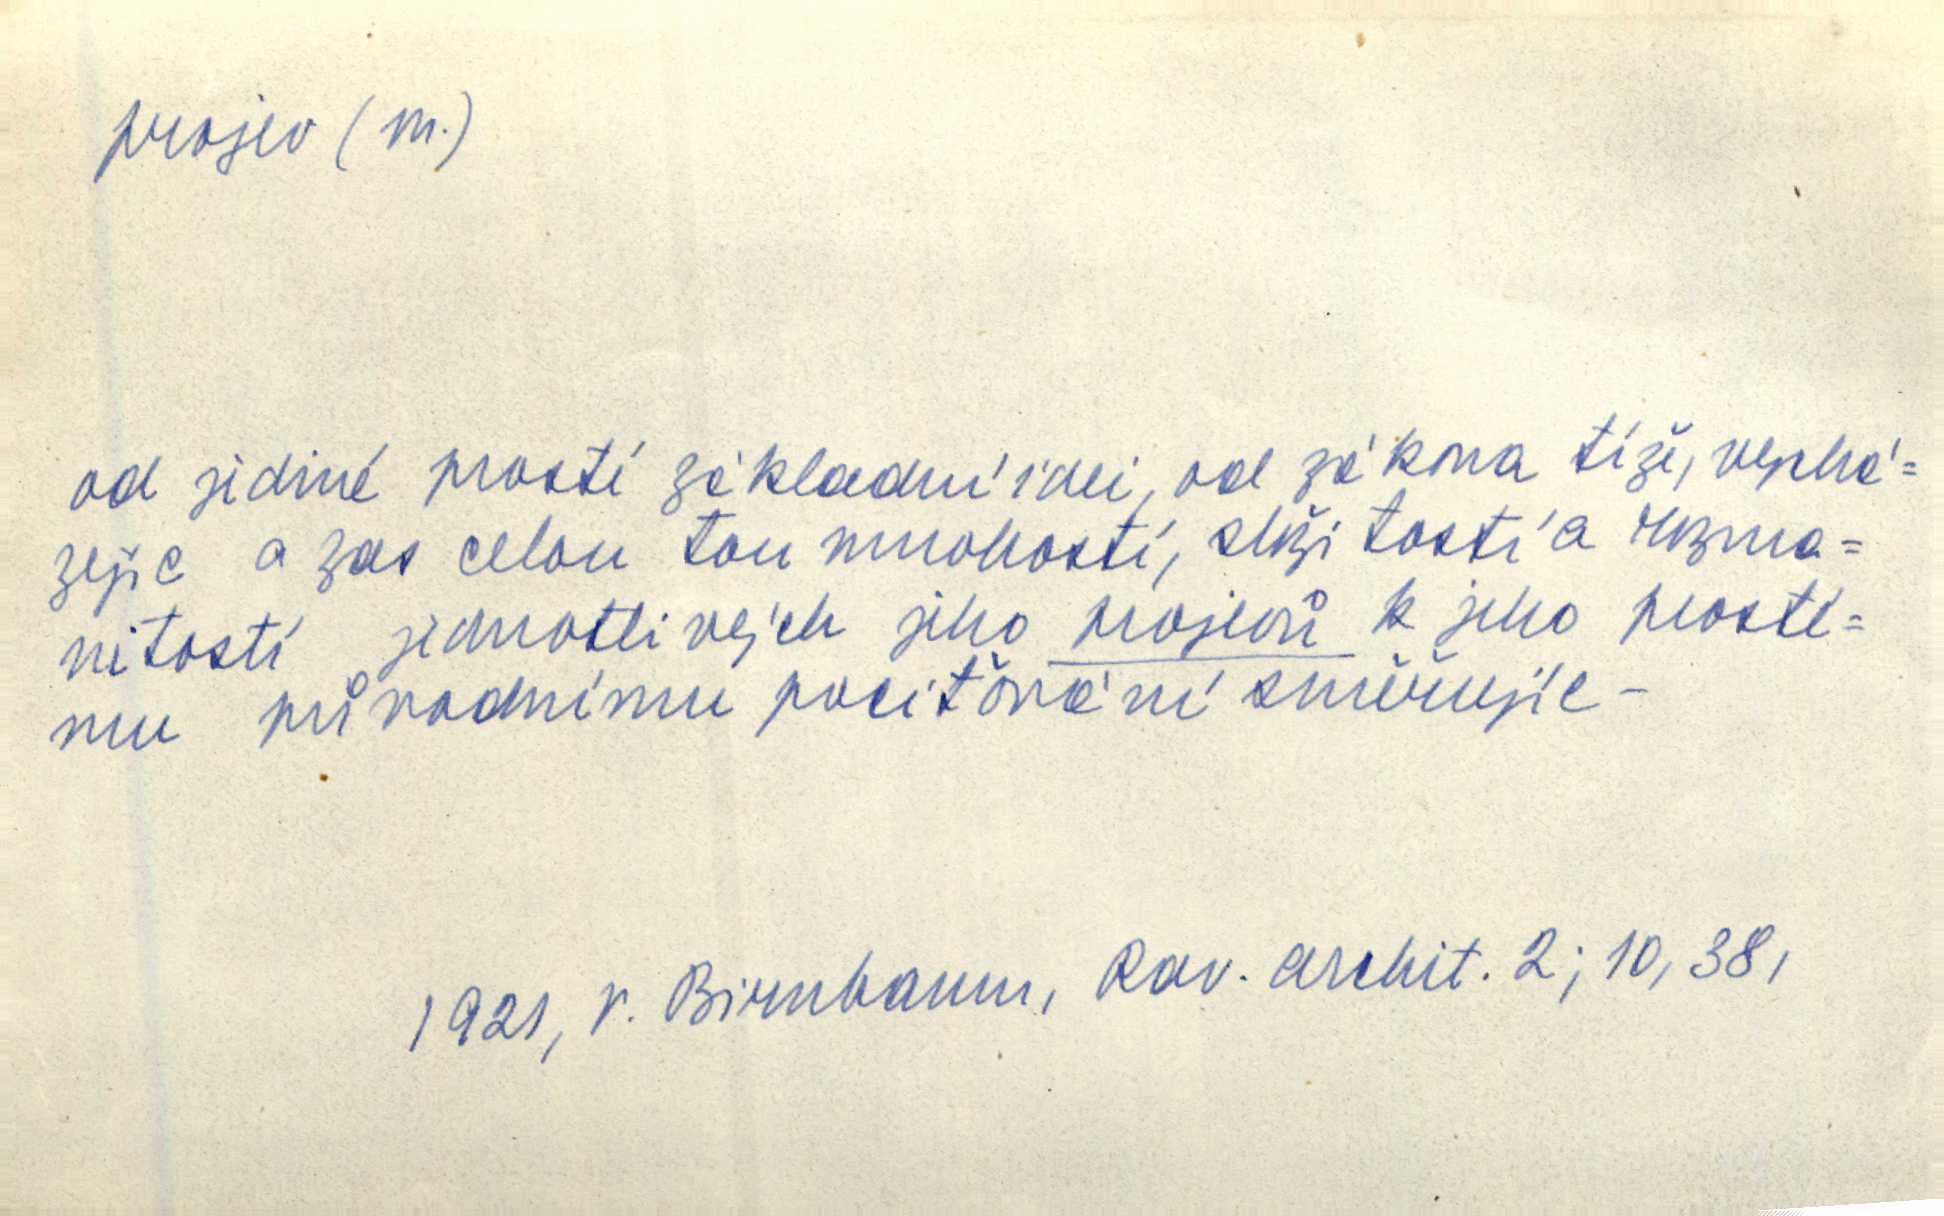 projev (m.)
od jediné prosté základní idei, od zákona tíže, vychá=
zejíc a zas celou tou mnohostí, složitostí a rozma=
nitostí jednotlivých jeho projevů k jeho prosté=
mu původnímu pociťování směřujíc –
1921, V. Birnbaum, Rav. archit. 2; 10, 38,